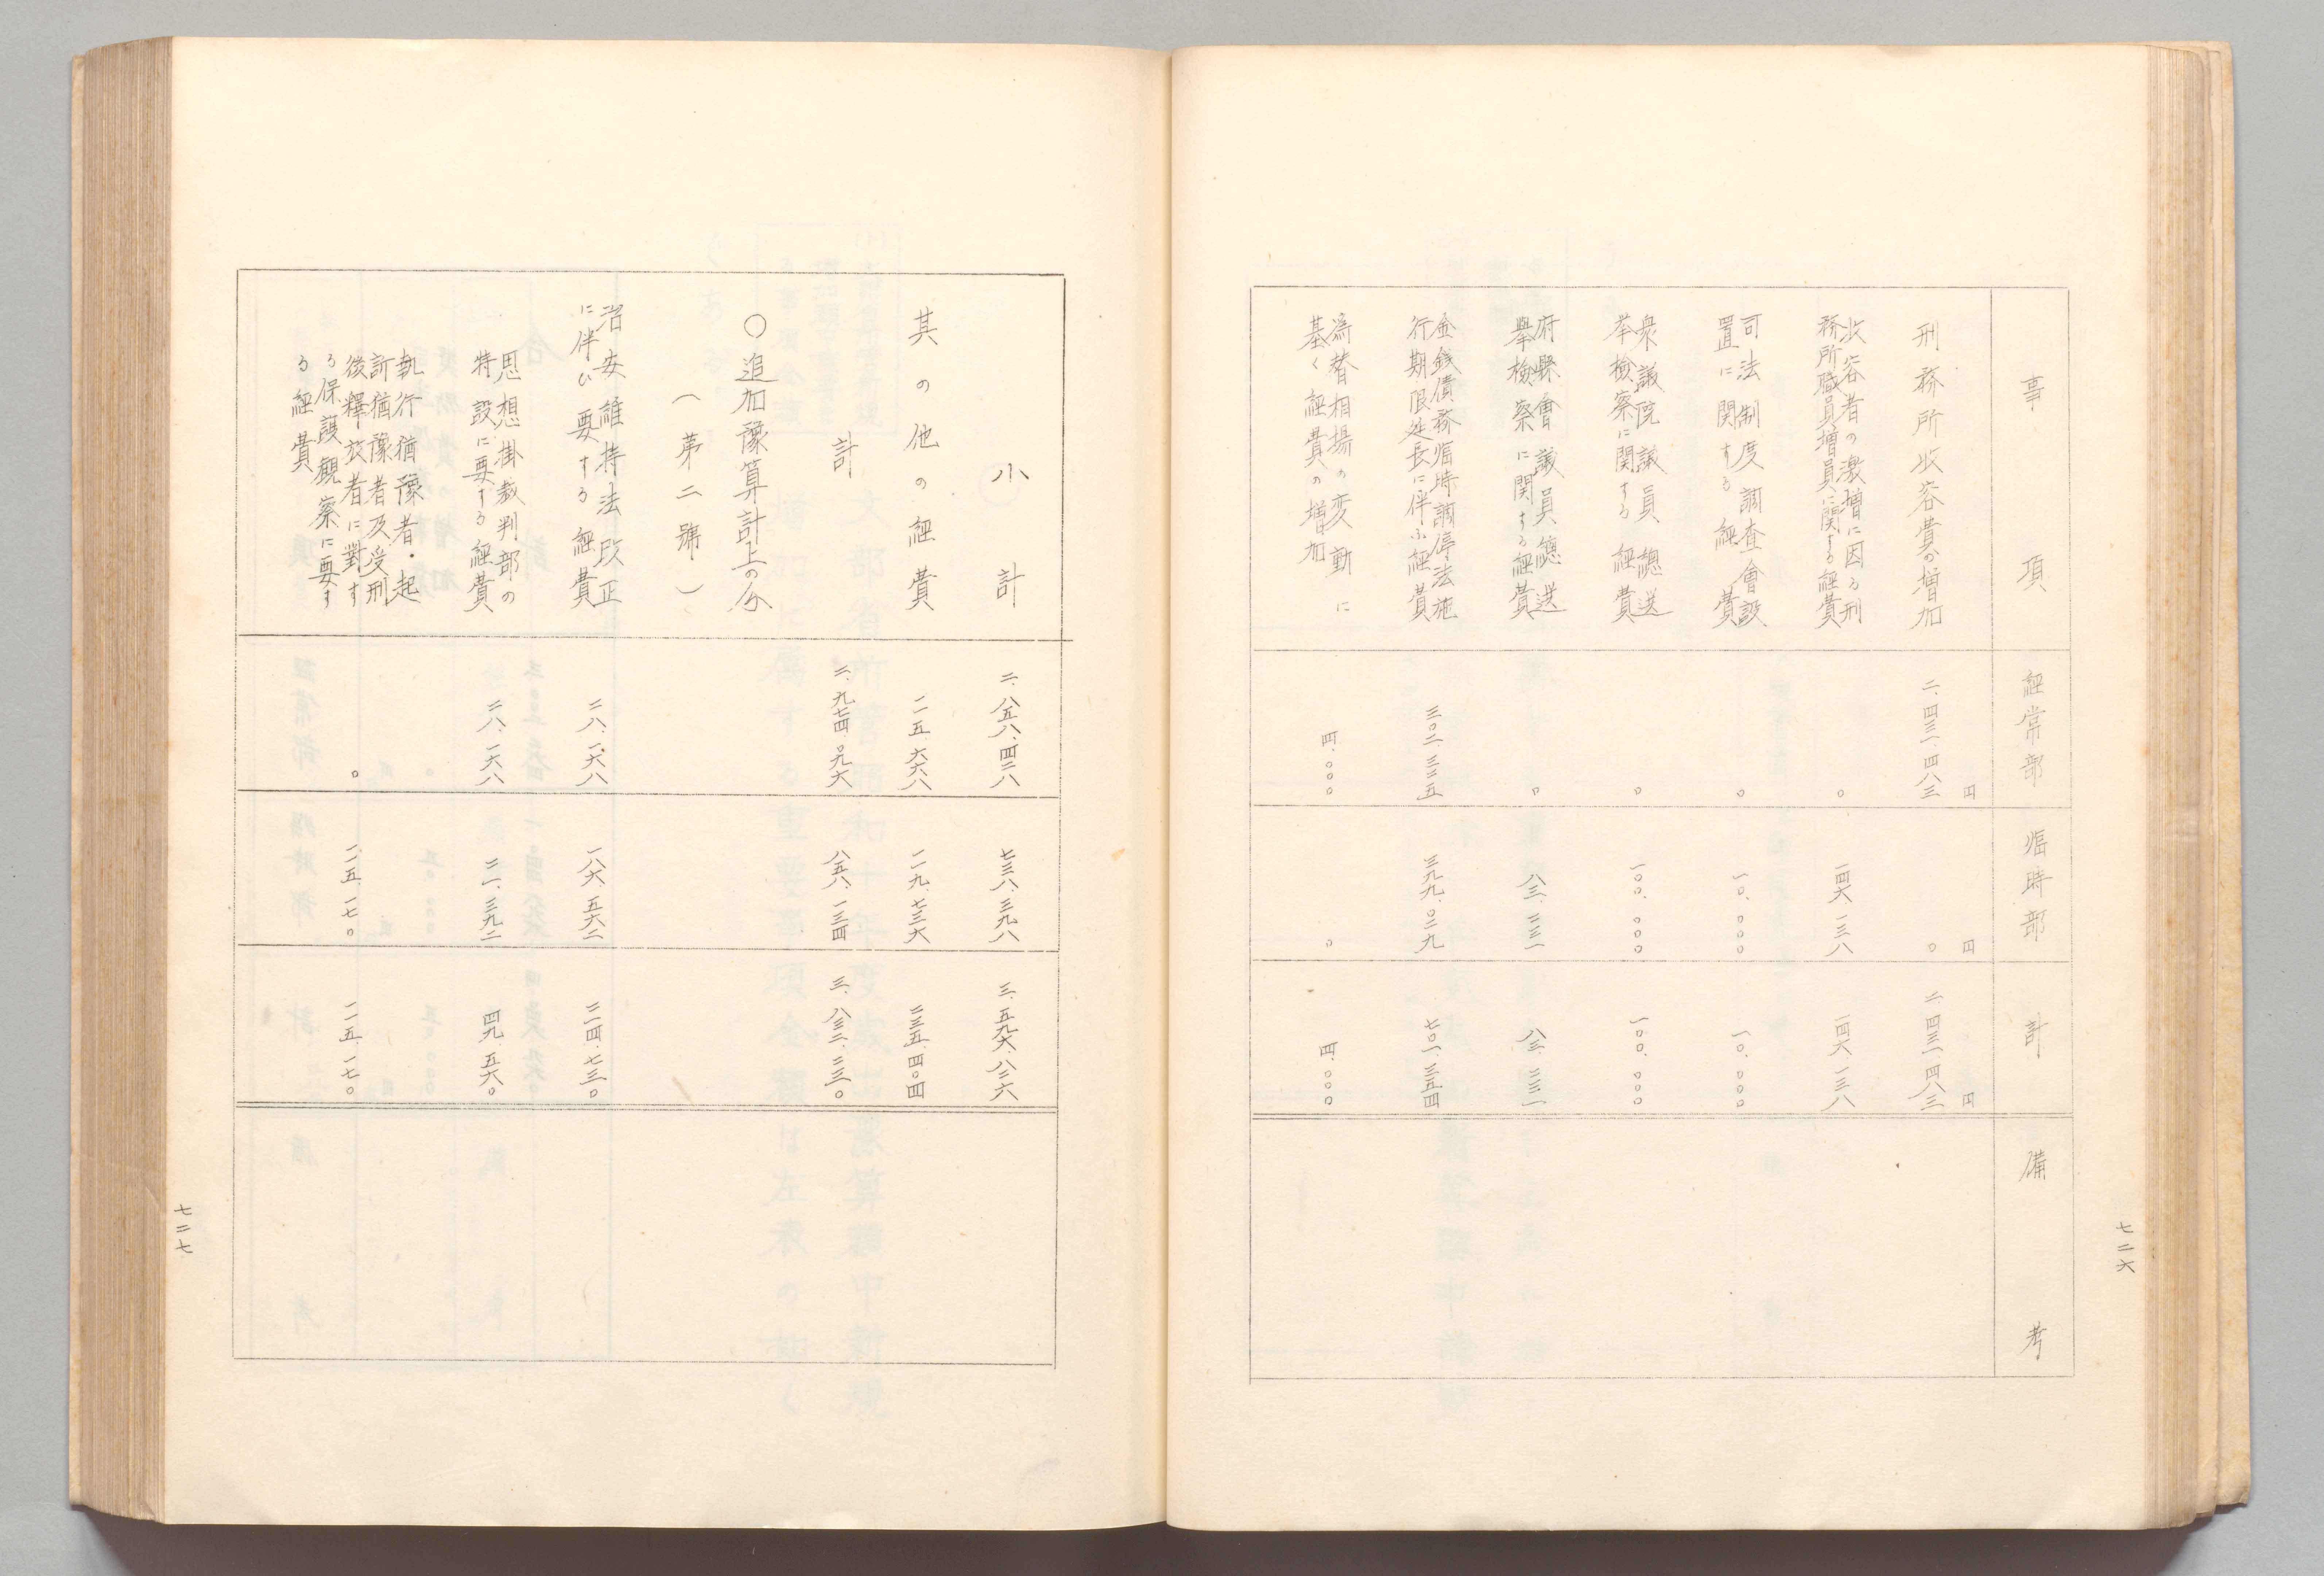 事項
經常部
臨時部
計
備考
円
円
円
刑務所收容費の増加
二、四三一、四八三
〇
二、四三一、四八三
收容者の激増に因る刑
務所職員増員に関する經費
〇
一四六、一三八
一四六、一三八
司法制度調査會設
置に関する經費
〇
一〇、〇〇〇
一〇、〇〇〇
衆議院議員總選
挙檢察に関する經費
〇
一〇〇、〇〇〇
一〇〇、〇〇〇
府縣會議員總選
擧檢察に関する經費
〇
八三、二三一
八三、二三一
金錢債務臨時調停法施
行期限延長に伴ふ經費
三〇二、三二五
三九九、〇二九
七〇一、三五四
為替相場の変動に
基く經費の増加
四、〇〇〇
〇
四、〇〇〇
七二六
小計
二、八五八、四二八
七三八、三九八
三、五九六、八二六
其の他の經費
一一五、六六八
一一九、七三六
二三五、四〇四
計
二、九七四、〇九六
八五八、一三四
三、八三二、二三〇
〇追加豫算計上の分
（第二號）
治安維持法改正
に伴ひ要する經費
二八、一六八
一八六、五六二
二一四、七三〇
思想掛裁判部の
特設に要する經費
二八、一六八
二一、三九二
四九、五六〇
執行猶豫者・起
訴猶豫者及受刑
後釋放者に對す
る保護觀察に要す
る經費
〇
一一五、一七〇
一一五、一七〇
七二七